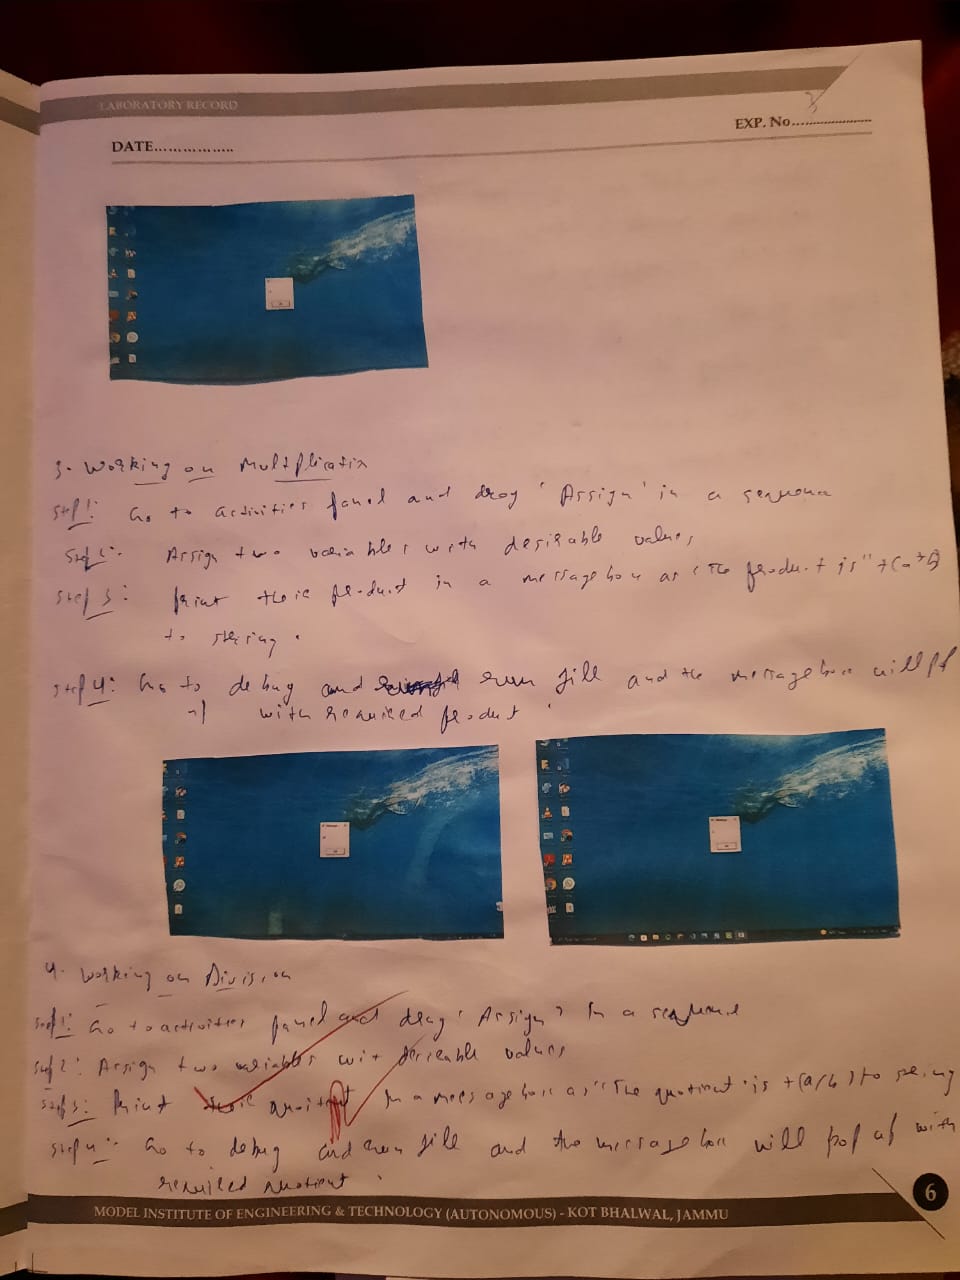 LABORATORY RECORD
EXP. No.....................
DATE................
3. Working on Multiplication
Step 1: Go to activities panel and drag 'Assign' in a sequence
Step 2: Assign two variables with desirable values
Step 3: Print their product in a message box as "The product is" + (a*b)
to string.
Step 4: Go to debug and run file and the message box will pop
up with required product.
4. Working on Division
Step 1: Go to activities panel and drag 'Assign' in a sequence
Step 2: Assign two variables wit desirable values
Step 3: Print their quotient in a message box as "The quotient is + (a/b) to string
Step 4: Go to debug and run file and the message box will pop up with
required quotient.
6
MODEL INSTITUTE OF ENGINEERING & TECHNOLOGY (AUTONOMOUS) - KOT BHALWAL, JAMMU